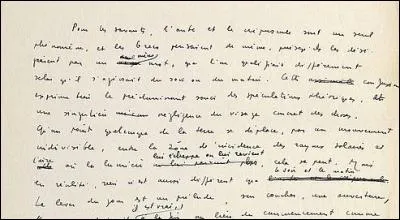 Pour les savants, l'aube et le crépuscule sont un seul
phénomène, et les Grecs pensaient de même, puisqu'ils les dési
gnaient par un même mot, que l'on qualifiait différemment
selon qu'il s'agissait du soir ou du matin. Cette confusion
exprime bien le prédominant souci des spéculations théoriques, et
une singulière négligence du visage concret des choses.
Qu'un point quelconque de la terre se déplace, par un mouvement
indivisible, entre la zone d'incidence des rayons solaires et
celle où la lumière lui échappe ou lui revient, cela se peut. Mais
en réalité, rien n'est aussi différent que le soir et le matin.
Le lever du jour est un prélude, son coucher, une ouverture,
au lieu du commencement comme